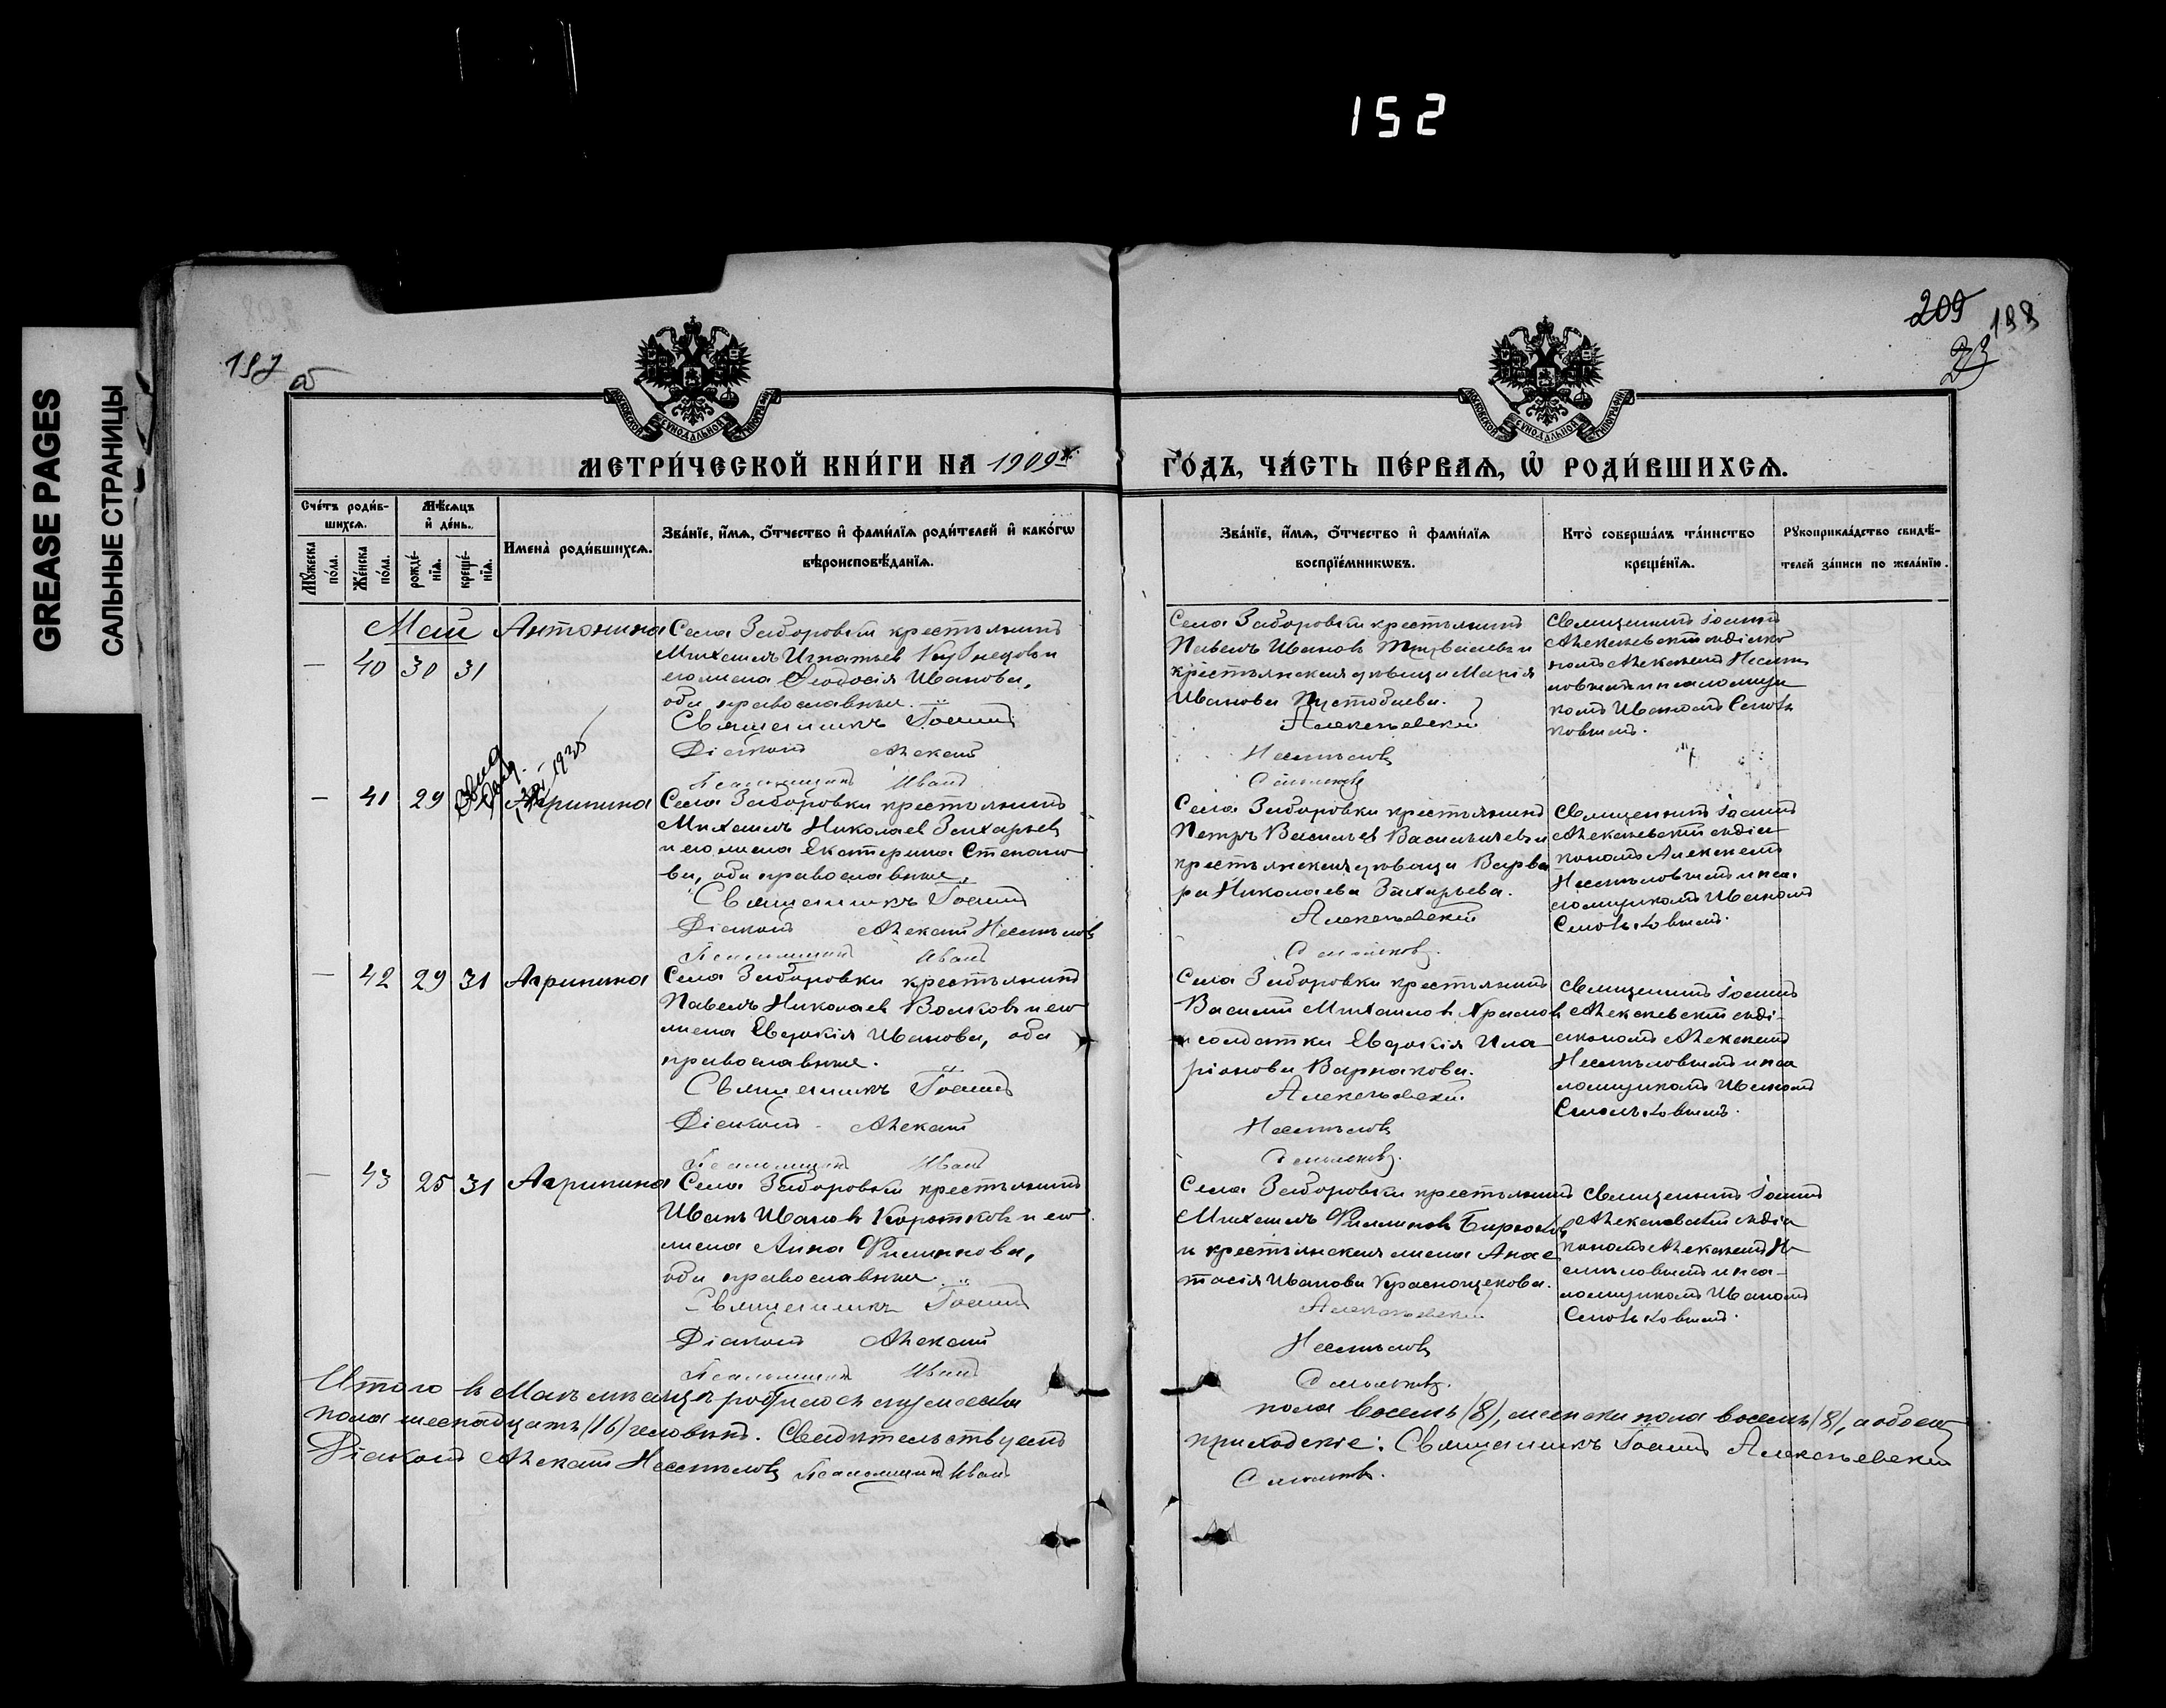 152
GREASE PAGES
САЛЬНЫЕ СТРАНИЦЫ
197 об
209 198
23
МОСКОВСКОЙ СѴНОДАЛЬНОЙ ТИПОГРАФІИ
МОСКОВСКОЙ СѴНОДАЛЬНОЙ ТИПОГРАФІИ
МЕТРИ́ЧЕСКОЙ КНИ́ГИ НА 1909й
ГО́ДЪ, ЧА́СТЬ ПЕ́РВАЯ, Ѽ РОДИ́ВШИХСЯ.
Сче́тъ роди́в-
шихся.
Мѣ́сяцъ
и де́нь.
Му́жеска
по́ла.
Же́нска
по́ла.
рожде́-
нія.
креще́-
нія.
Имена̀ роди́вшихся.
Зва́ніе, и́мя, о́тчество и фами́лія роди́телей и како́гѡ
вѣроисповѣ́данія.
Зва́ніе, и́мя, о́тчество и фами́лія
воспріе́мникѡвъ.
Кто̀ соверша́лъ та́инство
креще́нія.
Рꙋкоприкла́дство свидѣ́-
телей за́писи по жела́нію.
Май
— 40 30 31 Антонина
Села Заборовки крестьянинъ
Михаилъ Игнатьев Кузнецовъ и
его жена Ѳеодосія Иванова,
оба православные.
Священникъ Іоаннъ
Діаконъ Алексѣй
Псаломщикъ Иванъ
Села Заборовки крестьянинъ
Павелъ Ивановъ
крестьянская дѣвица Марія
Иванова Пустобаева.
Алексѣевскій
Несмѣловъ
Смольковъ
Священникъ Іоаннъ
Алексѣевскій съ діако-
номъ Алексѣемъ Несмѣ-
ловымъ и псаломщи-
комъ Иваномъ Смоль-
ковымъ.
— 41 29 Агрипина
1935
Села Заборовки крестьянинъ
Михаилъ Николаев Захарьев
и его жена Екатерина Степано-
ва, оба православные.
Священникъ Іоаннъ
Діаконъ Алексѣй Несмѣловъ
Псаломщикъ Иванъ
Села Заборовки крестьянинъ
Петръ Васильев Васильичевъ и
крестьянская дѣвица Варва-
ра Николаева Захарьева.
Алексѣевскій
Смольковъ.
Священникъ Іоаннъ
Алексѣевскій съ діа-
кономъ Алексѣемъ
Несмѣловымъ и пса-
ломщикомъ Иваномъ
Смольковымъ.
— 42 29 31 Агрипина
Села Заборовки крестьянинъ
Павелъ Николаев Волковъ и его
жена Евдокія Иванова, оба
православные.
Священникъ Іоаннъ
Діаконъ Алексѣй
Псаломщикъ Иванъ
Села Заборовки крестьянинъ
Василій Михаиловъ Храмов
и солдатка Евдокія Ила-
ріонова Варнакова.
Алексѣевскій
Несмѣловъ
Смольковъ.
Священникъ Іоаннъ
Алексѣевскій съ ді-
акономъ Алексѣемъ
Несмѣловымъ и пса-
ломщикомъ Иваномъ
Смольковымъ.
— 43 25 31 Агрипина
Села Заборовки крестьянинъ
Иванъ Ивановъ Коротковъ и его
жена Анна Филиппова,
оба православные.
Священникъ Іоаннъ
Діаконъ Алексѣй
Псаломщикъ Иванъ
Села Заборовки крестьянинъ
Михаилъ Филипповъ Бирюковъ
и крестьянская жена Анас-
тасія Иванова Краснощекова.
Алексѣевскій
Несмѣловъ
Смольковъ.
Священникъ Іоаннъ
Алексѣевскій съ діа-
кономъ Алексѣемъ Не-
смѣловымъ и пса-
ломщикомъ Иваномъ
Смольковымъ.
Итого въ Маѣ мѣсяцѣ родилось мужеска
пола восемь /8/, женска пола восемь /8/, а обоего
пола шеснадцать /16/ человѣкъ. Свидѣтельствуемъ
Священникъ Іоаннъ Алексѣевскій
Діаконъ Алексѣй Несмѣловъ Псаломщикъ Иванъ
Смольковъ.